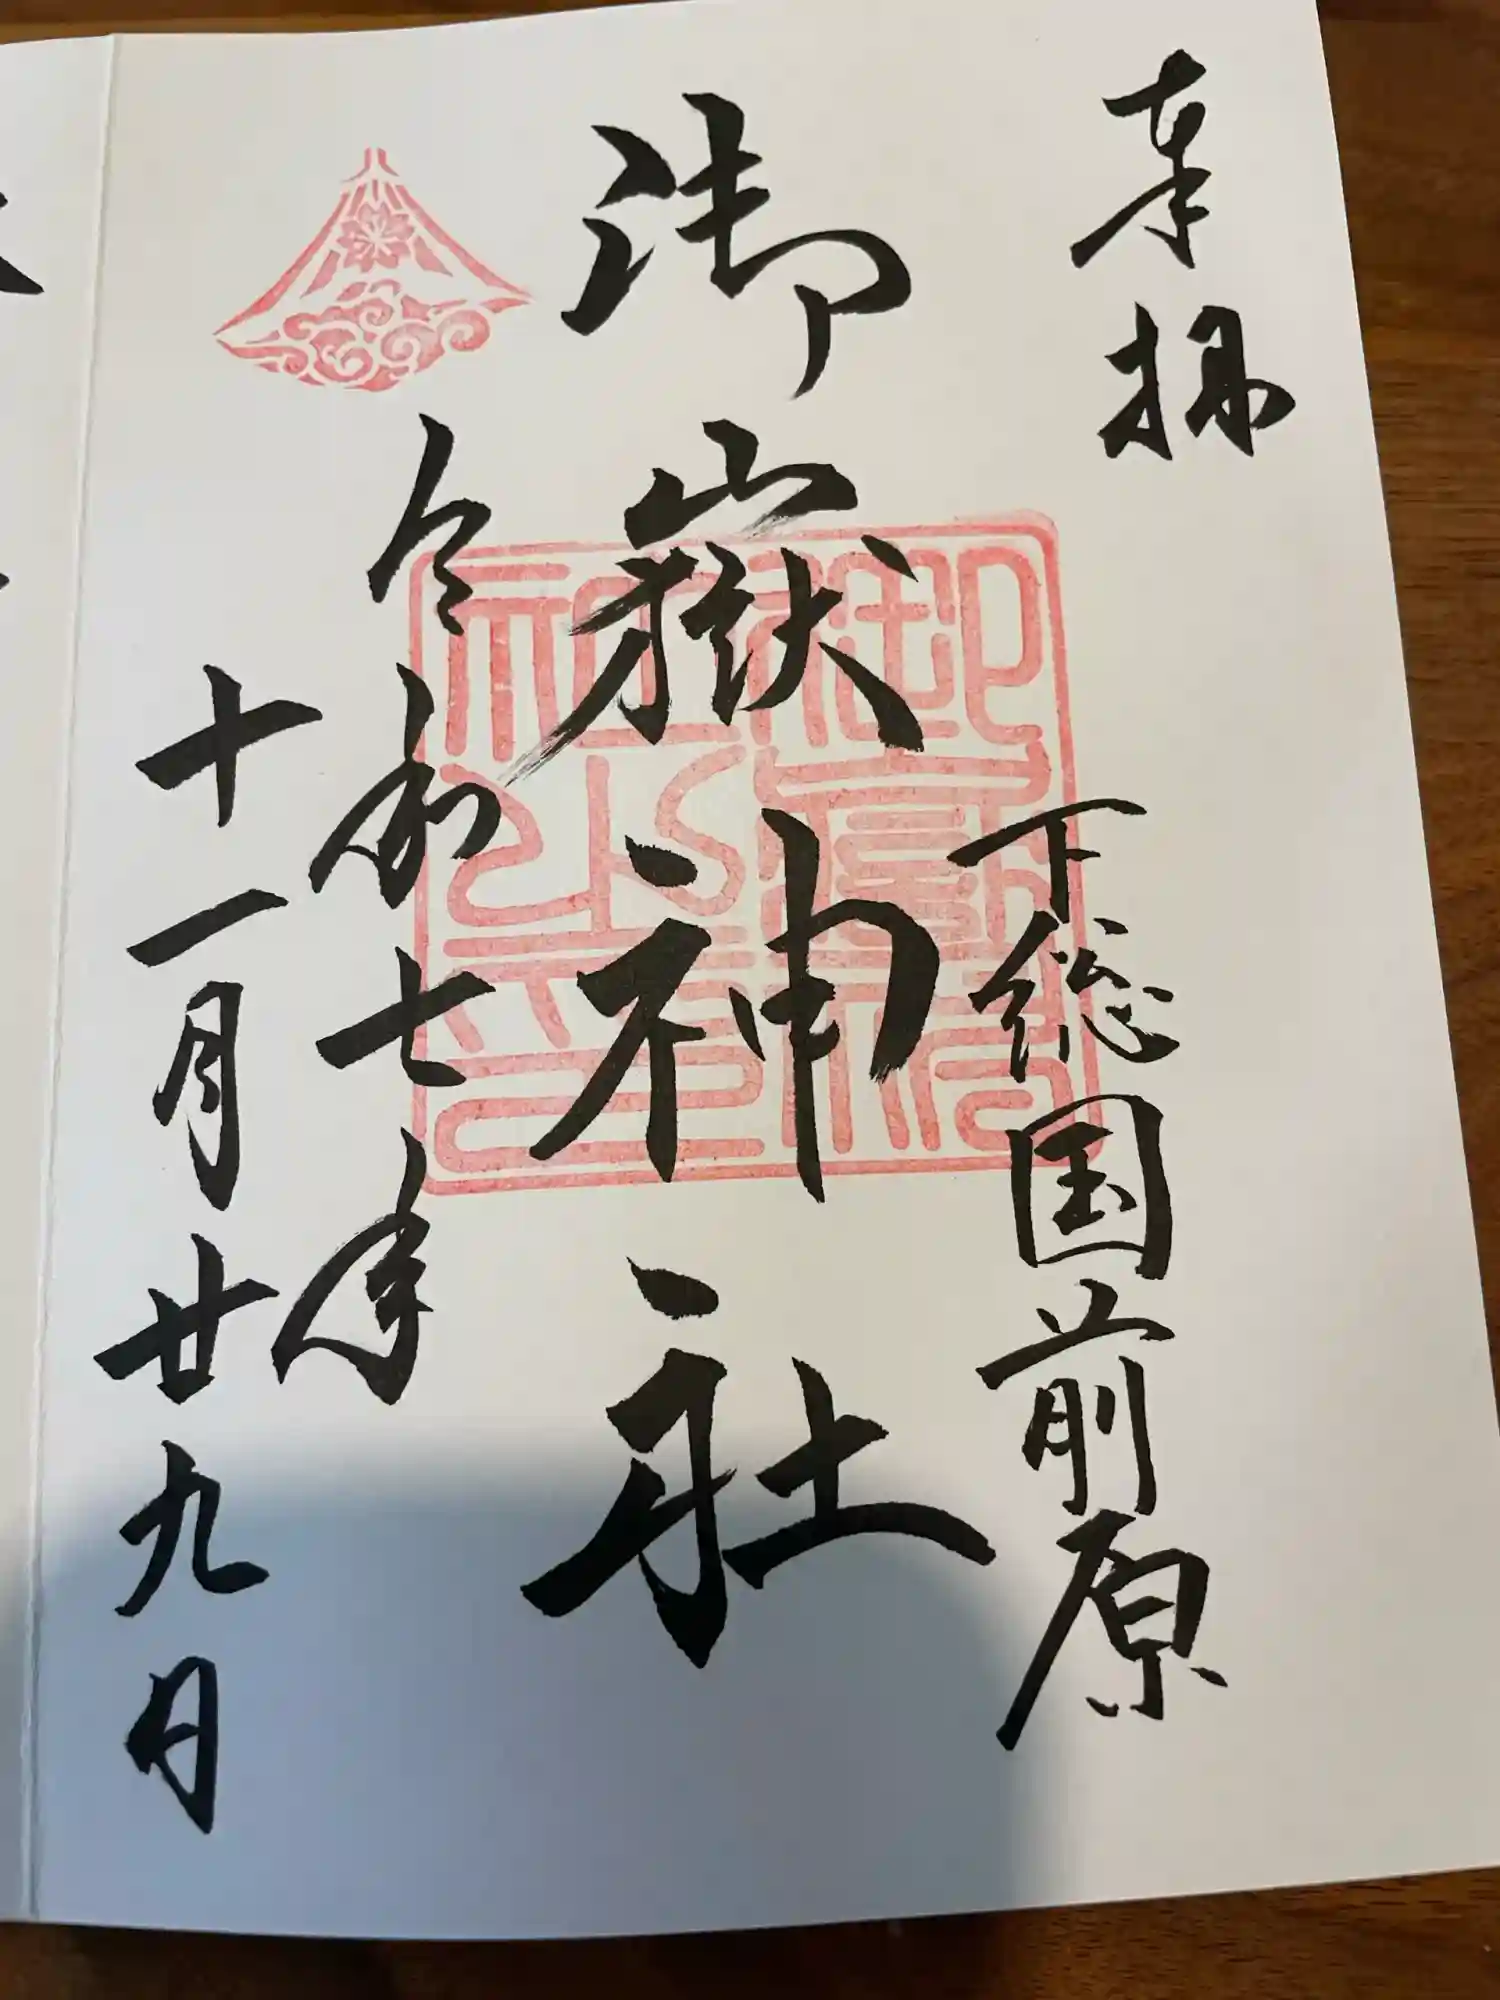 奉拝
下総国前原
御嶽神社
令和七年
十一月廿九日
御嶽神社之印